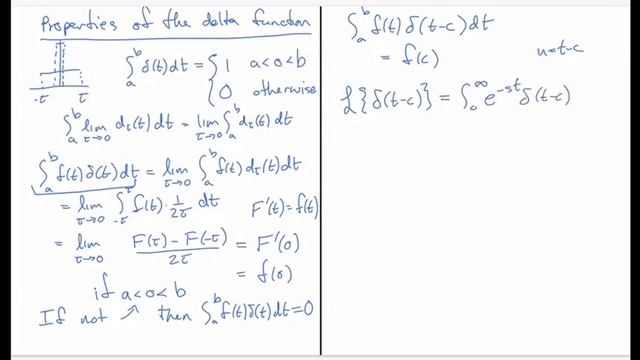 Properties of the delta function
-τ τ
∫_a^b δ(t)dt = { 1 a<0<b
0 otherwise
∫_a^b lim_{τ→0} d_τ(t) dt = lim_{τ→0} ∫_a^b d_τ(t) dt
∫_a^b f(t) δ(t) dt = lim_{τ→0} ∫_a^b f(t) d_τ(t) dt
= lim_{τ→0} ∫_{-τ}^τ f(t)·1/2τ dt F'(t)=f(t)
= lim_{τ→0} F(τ)-F(-τ)/2τ = F'(0)
= f(0)
if a<0<b
If not then ∫_a^b f(t)δ(t)dt=0
∫_a^b f(t) δ(t-c) dt
= f(c) u=t-c
ℒ{δ(t-c)} = ∫_0^∞ e^{-st} δ(t-c)